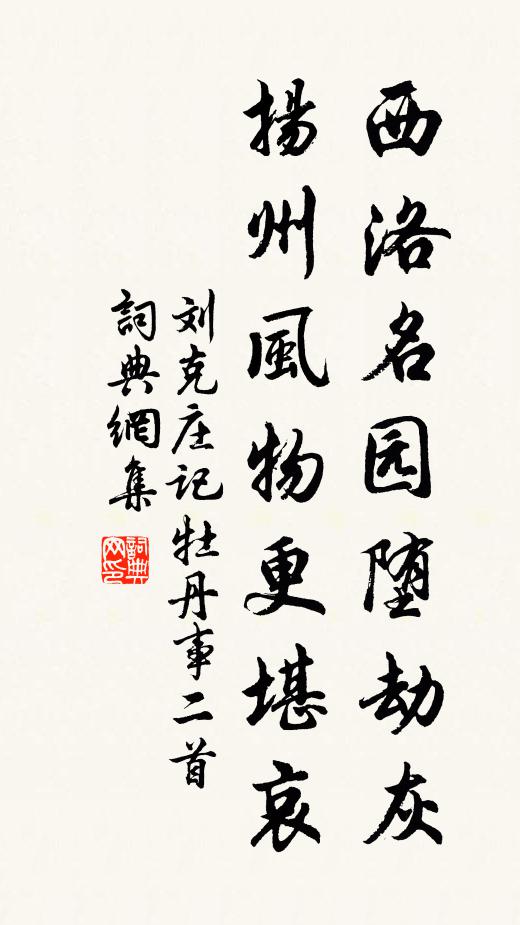 西洛名园堕劫灰
揚州風物更堪哀
刘克庄记牡丹事二首
詞典網集
詞典网印